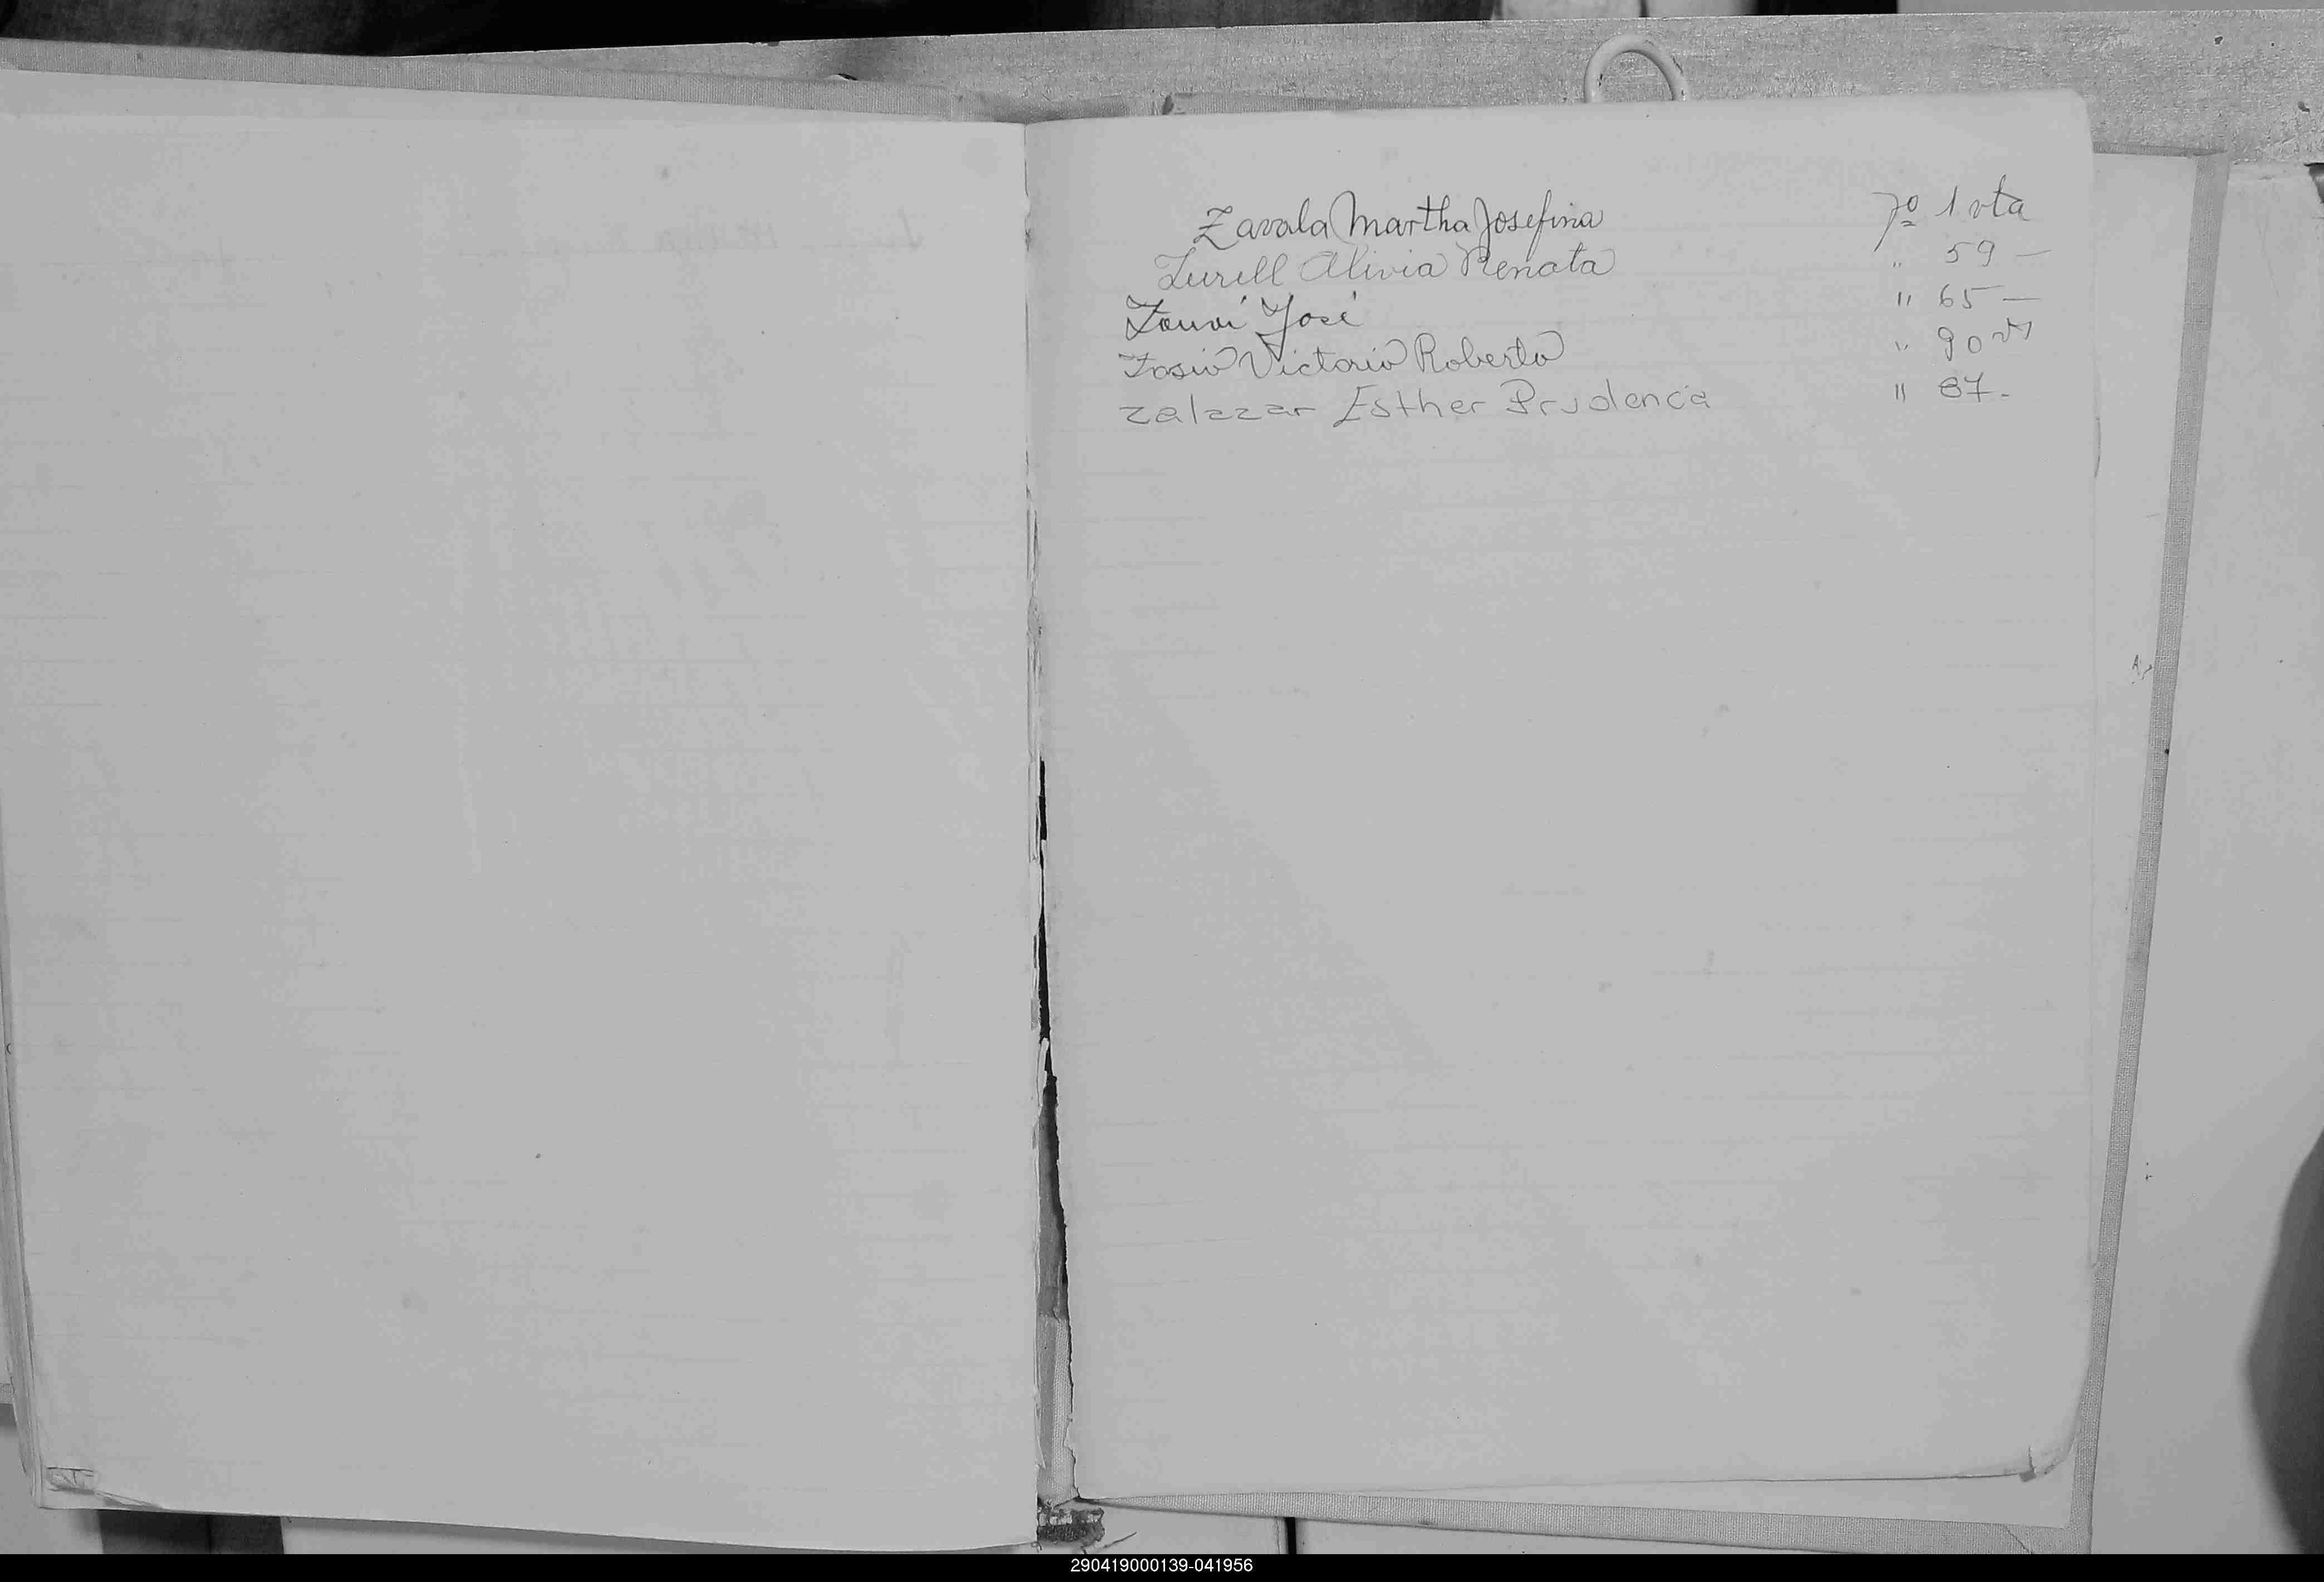 Zavala Martha Josefina fº 1 vta
Zurell Alivia Renata " 59 —
José " 65 —
Victorio Roberto " 90 vt
Zalazar Esther Prudencia " 87.-
290419000139-041956